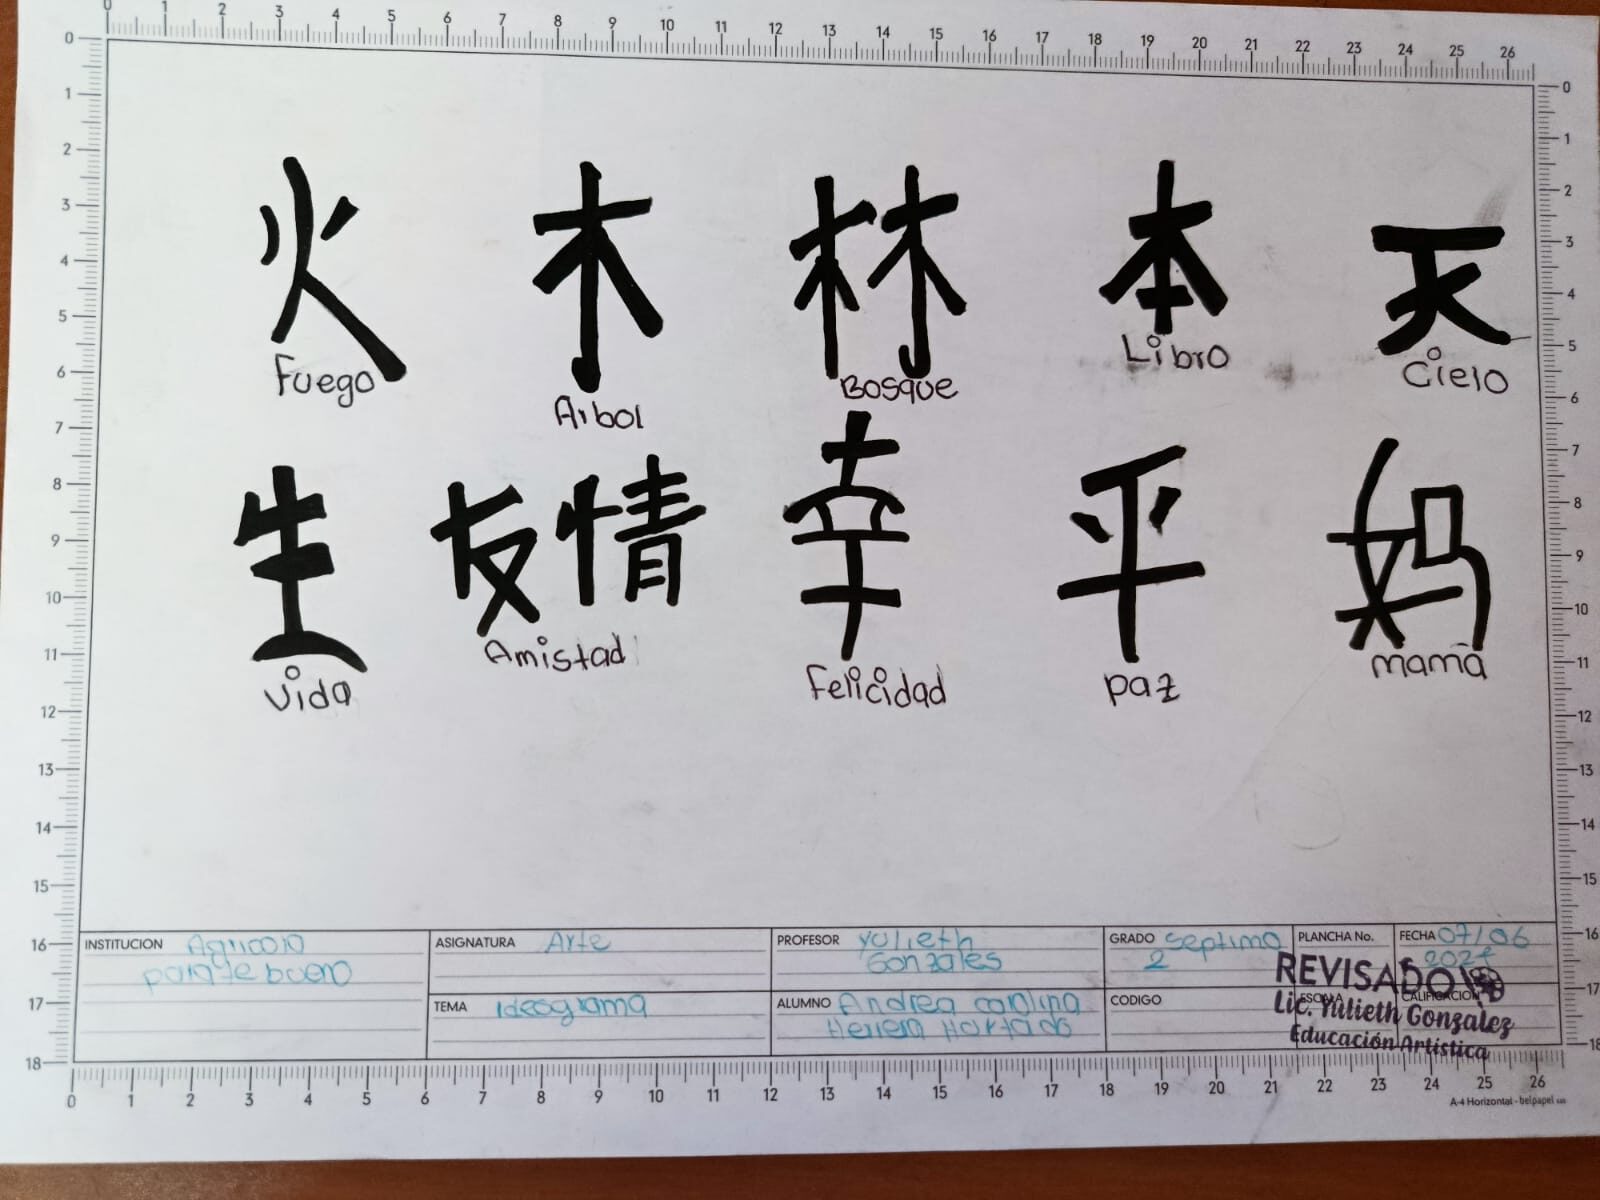 火 木 林 本 天
Fuego Arbol Bosque Libro Cielo
生 友情 幸 平 妈
Vida Amistad Felicidad Paz mamá
INSTITUCION Agricola
parque bueno
ASIGNATURA Arte
TEMA Ideograma
PROFESOR Yulieth
Gonzales
ALUMNO Andrea carolina
Herrera Hurtado
GRADO Septimo
2
CODIGO
PLANCHA No.
ESCALA
FECHA 07/06
CALIFICACION
REVISADO
Lic. Yulieth Gonzalez
Educación Artística
A-4 Horizontal - belpapel sas